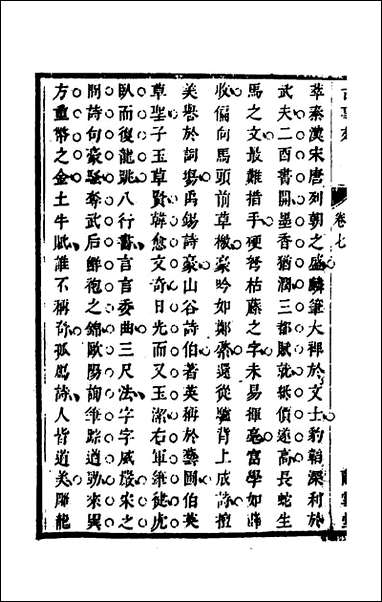 卷七
萃秦漢宋唐列朝之盛麟筆大裨於文士豹韜深利於
武夫二酉書開墨香猶潤三都賦就紙價遂高長蛇生
馬之文最難措手硬弩枯藤之字未易揮毫富學如薛
收偏向馬頭前草檄豪吟如鄭綮還從驢背上成詩擅
美譽於詞場禹錫詩豪山谷詩伯著英稱於藝圃伯英
草聖子玉草賢韓愈文奇日光而又玉潔右軍筆徒虎
臥而復龍跳八行書言言委曲三尺法字字威嚴宋之
問詩句豪騷奪武后鮮袍之錦歐陽詢筆踪遒勁來異
方重幣之金土牛賦誰不稱奇孤鴈詩人皆道美歸龍